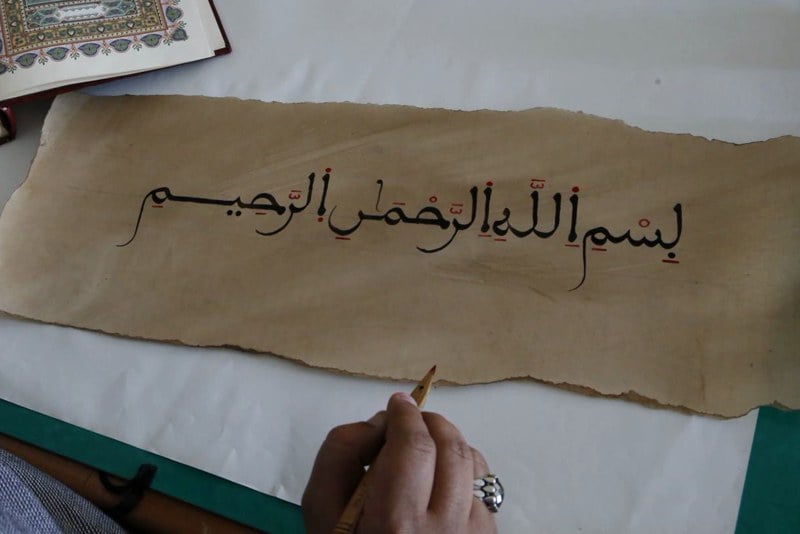 بِسْمِ اِ۬للَّهِ اِ۬لرَّحْمَٰنِ اِ۬لرَّحِيمِ